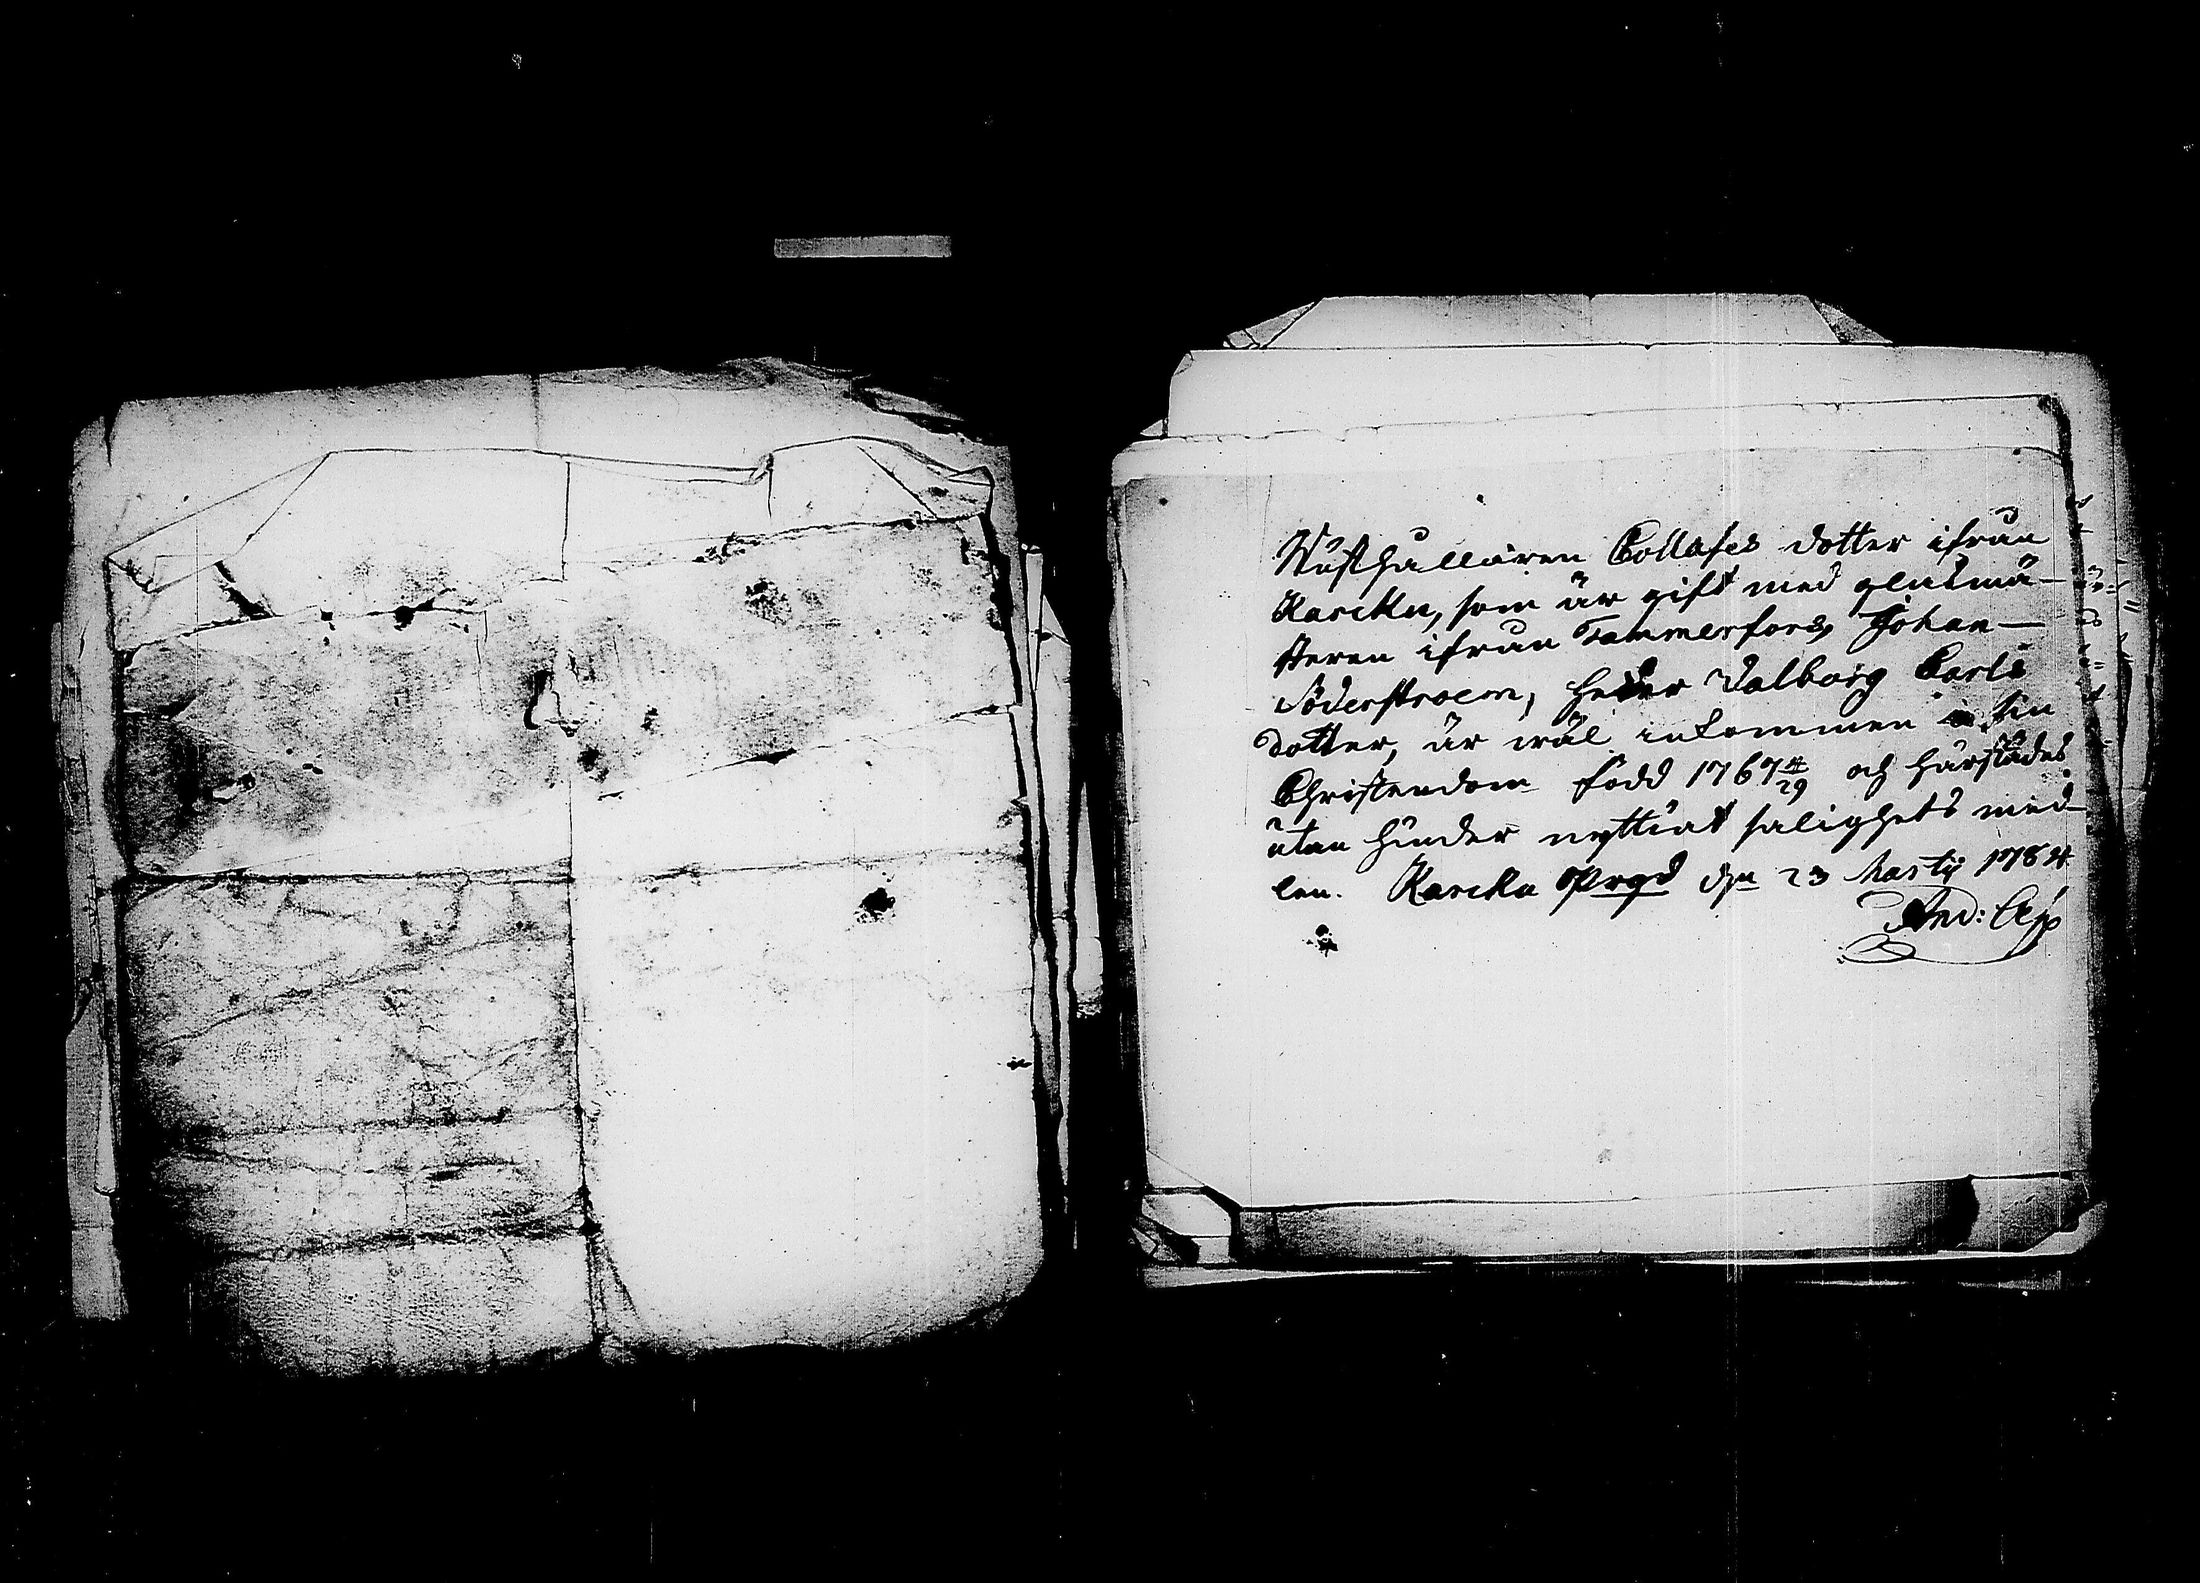 Rusthållaren Collases dotter ifrån
Karcku, som är gift med glasmä-
staren ifrån Tammerfors, Johan
Söderstroem, heder Valborg Carls
dotter, är wäl inkommen i sin
Christendom född 1767 4/29 och härstädes
utan hinder nyttiat salighets med-
len. Karcku Prgd d. 23 Martij 1784
And: